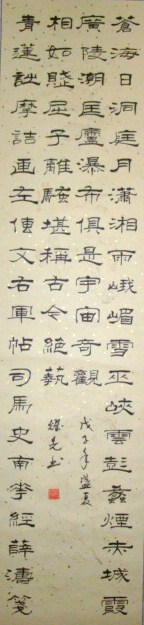 蒼海日洞庭月瀟湘雨峨嵋雪巫峽雲彭蠡煙赤城霞
廣陵潮匡廬瀑布俱是宇宙奇觀
青蓮詩摩詰画左傳文右軍帖司馬史南華經薛濤箋
相如賦屈子離騷堪稱古今絕藝
戊子年盛夏
书